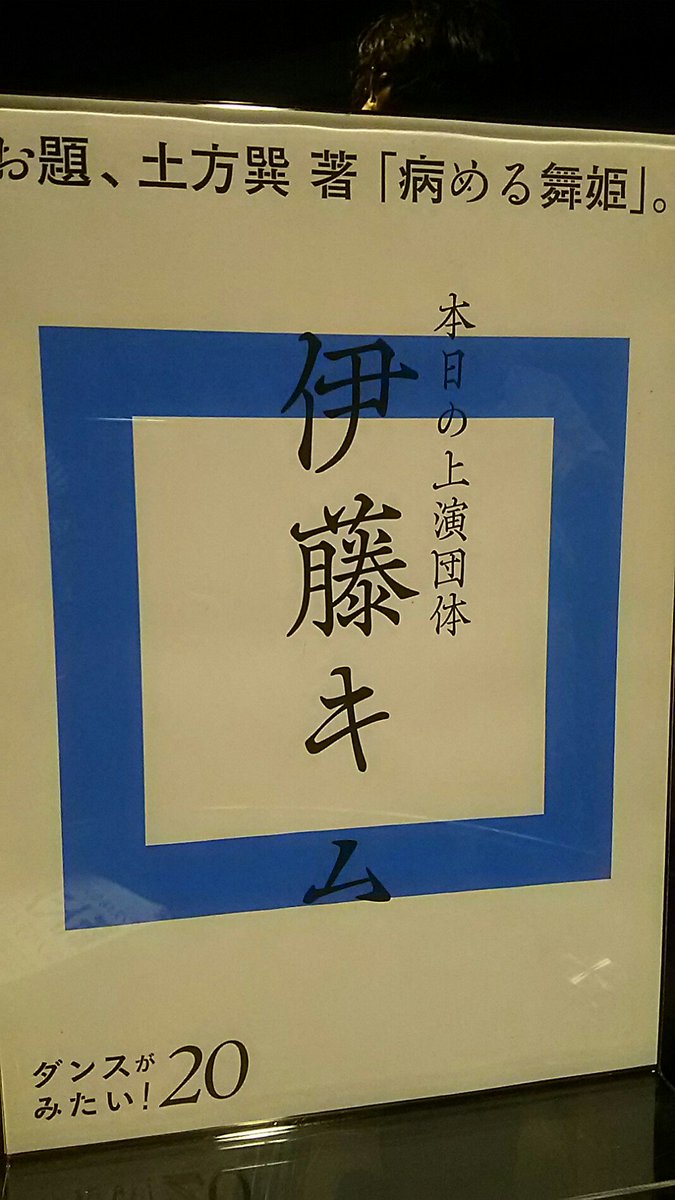 お題、土方巽 著「病める舞姫」。
本日の上演団体
伊藤キム
ダンスが
みたい！20